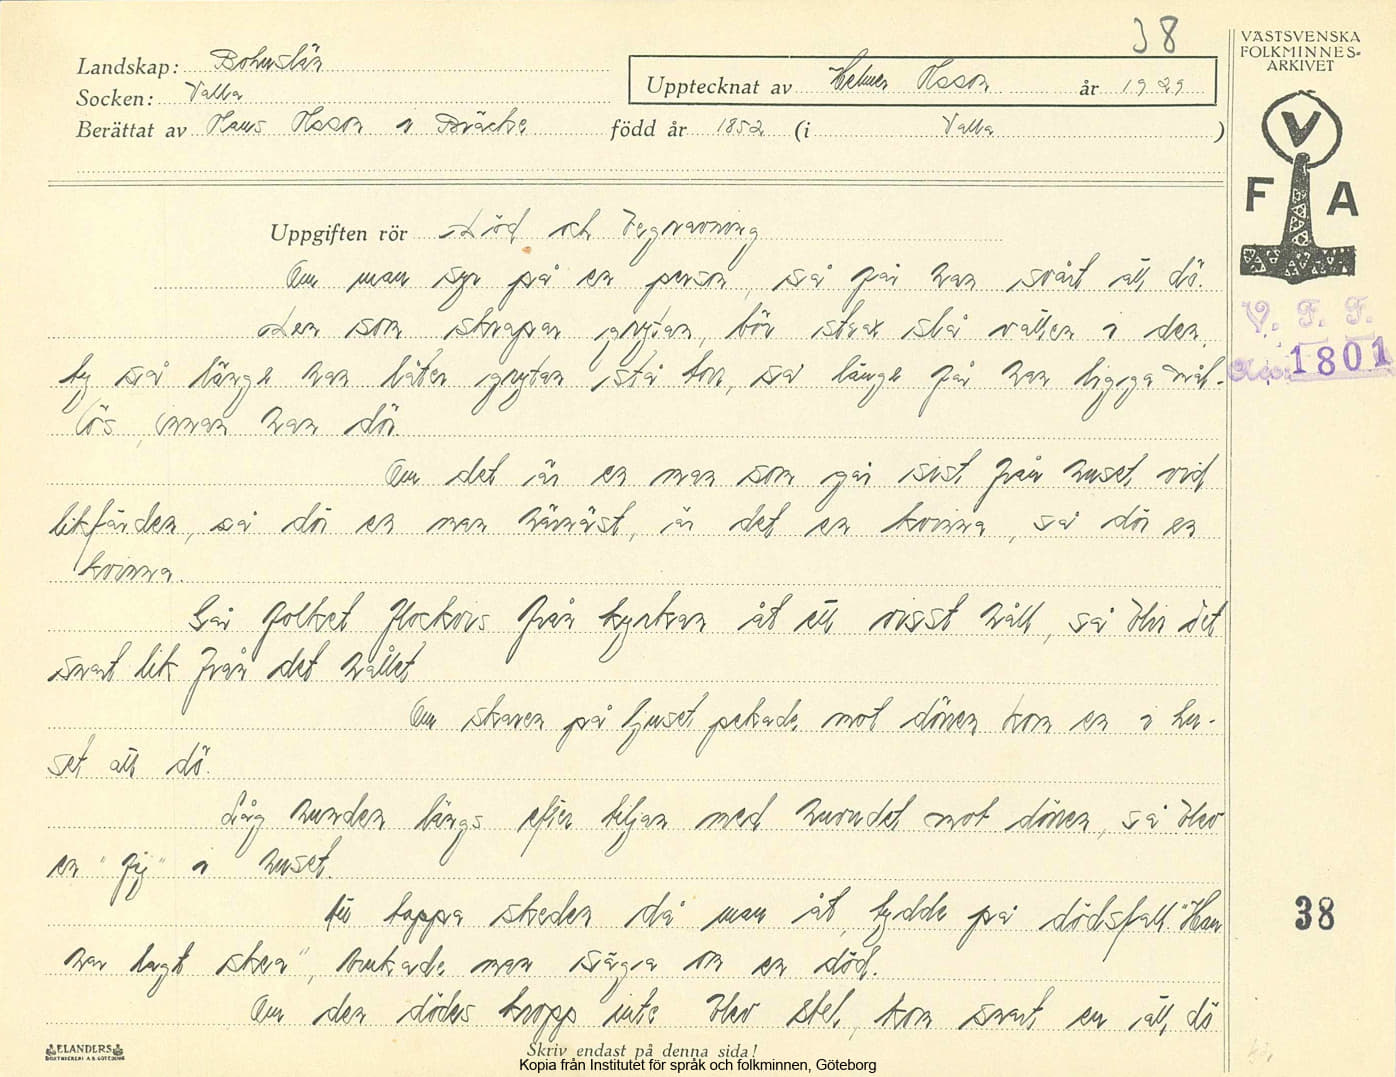 38
VÄSTSVENSKA
FOLKMINNES-
ARKIVET
Landskap: Bohuslän
Upptecknat av Helmer Olsson år 1929
Socken: Valla
Berättat av Hans Olsson i Bräcke född år 1852 (i Valla )
V
F A
Uppgiften rör Död och begravning
Om man syr på en person, så får han svårt att dö.
Den som skrapar grytan, bör strax slå vatten i den,
ty så länge han låter grytan stå torr, så länge får han ligga mål-
lös, innan han dör.
V. F. F.
Acc. 1801
Om det är en man som går sist från huset vid
likfärden, så dör en man härnäst, är det en kvinna, så dör en
kvinna.
Går folket flockvis från kyrkan åt ett visst håll, så blir det
snart lik från det hållet
Om skaren på ljuset pekade mot dörren kom en i hu-
set att dö.
Låg hunden längs efter tiljan med huvudet mot dörren, så blev
en "fij" i huset.
38
Att tappa skeden då man åt, tydde på dödsfall. "Han
har lagt skea", brukade man säga om en död.
Om den dödes kropp inte blev stel, kom snart en att dö
ELANDERS
BOKTRYCKERI A.B. GÖTEBORG
Skriv endast på denna sida!
Kopia från Institutet för språk och folkminnen, Göteborg